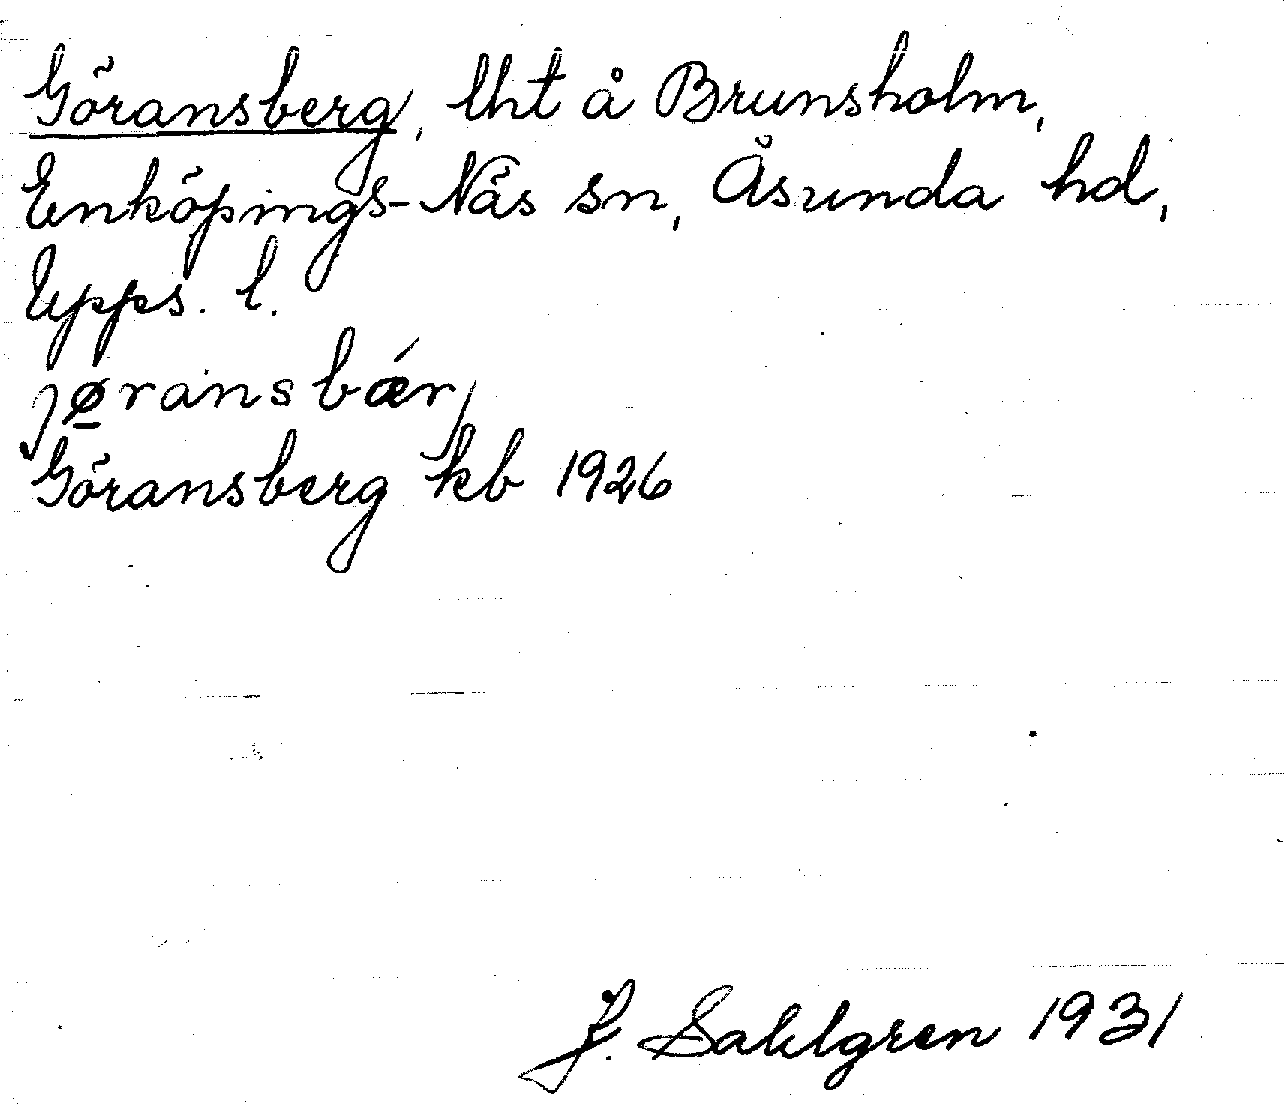 Göransberg, lht å Brunsholm,
Enköpings-Näs sn, Åsunda hd,
Upps. l.
jø̲ransbǽrj
Göransberg kb 1926
J. Sahlgren 1931